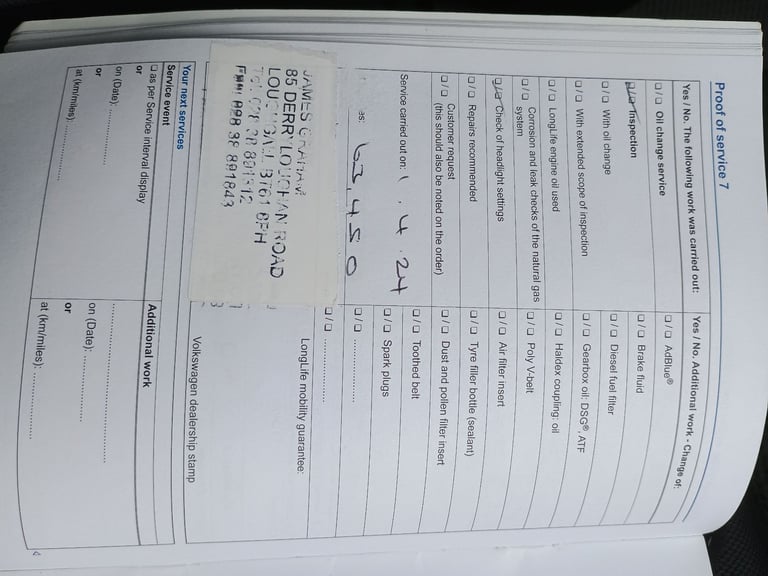 Proof of service 7
Yes / No. The following work was carried out:
☐ / ☐ Oil change service
☐ / ☐ Inspection
☐ / ☐ With oil change
☐ / ☐ With extended scope of inspection
☐ / ☐ LongLife engine oil used
☐ / ☐ Corrosion and leak checks of the natural gas
system
☐ / ☐ Check of headlight settings
☐ / ☐ Repairs recommended
☐ / ☐ Customer request
(this should also be noted on the order)
Service carried out on: 1 . 4 . 24
es: 63,450
JAMES GRAHAM
85 DERRYLOUGHAN ROAD
LOUGHGALL BT61 8PH
028 38 891843
Yes / No. Additional work - Change of:
☐ / ☐ AdBlue®
☐ / ☐ Brake fluid
☐ / ☐ Diesel fuel filter
☐ / ☐ Gearbox oil: DSG®, ATF
☐ / ☐ Haldex coupling: oil
☐ / ☐ Poly V-belt
☐ / ☐ Air filter insert
☐ / ☐ Tyre filler bottle (sealant)
☐ / ☐ Dust and pollen filter insert
☐ / ☐ Toothed belt
☐ / ☐ Spark plugs
☐ / ☐ ....................
☐ / ☐ ....................
LongLife mobility guarantee:
Volkswagen dealership stamp
Your next services
Service event
☐ as per Service interval display
or
on (Date): ....................
or
at (km/miles): ....................
Additional work
........................................
on (Date): ....................
or
at (km/miles): ....................